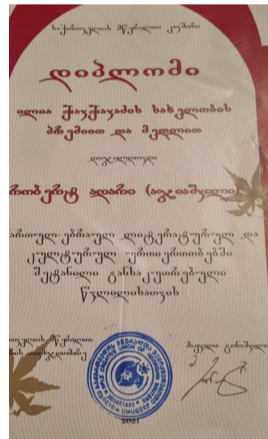 საქართველოს მწერალთა კავშირი
დიპლომი
ილია ჭავჭავაძის სახელობის
პრემიით და მედლით
დაჯილდოვდა
რობერტ ადარი (აჯიაშვილი)
ართულ-ებრაულ ლიტერატურულ და
კულტურულ ურთიერთობებში
შეტანილი განსაკუთრებული
წვლილისათვის
მაყვალა გონაშვილი
2021